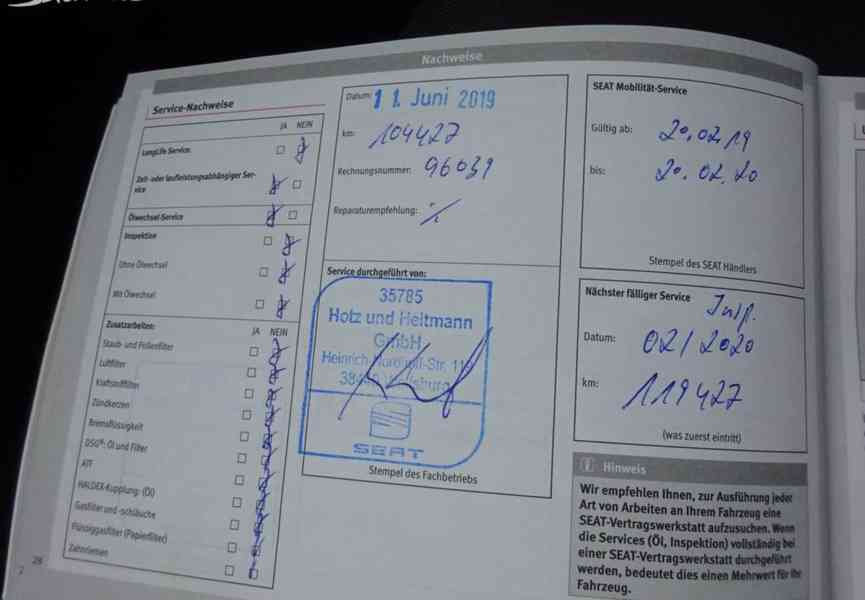 Nachweise
Service-Nachweise
JA NEIN
LongLife Service:
Zeit- oder laufleistungsabhängiger Ser-
vice
Ölwechsel-Service
Inspektion
Ohne Ölwechsel
Mit Ölwechsel
Zusatzarbeiten: JA NEIN
Staub- und Pollenfilter
Luftfilter
Kraftstofffilter
Zündkerzen
Bremsflüssigkeit
DSG®: Öl und Filter
ATF
HALDEX-Kupplung: (Öl)
Gasfilter und -schläuche
Flüssiggasfilter (Papierfilter)
Zahnriemen
28
Datum: 11. Juni 2019
km: 104427
Rechnungsnummer: 96039
Reparaturempfehlung:
Service durchgeführt von:
35785
Holz und Heitmann
GmbH
SEAT
Stempel des Fachbetriebs
SEAT Mobilität-Service
Gültig ab: 20.02.19
bis: 20.02.20
Stempel des SEAT Händlers
Nächster fälliger Service Insp.
Datum: 02/2020
km: 119427
(was zuerst eintritt)
i Hinweis
Wir empfehlen Ihnen, zur Ausführung jeder
Art von Arbeiten an Ihrem Fahrzeug eine
SEAT-Vertragswerkstatt aufzusuchen. Wenn
die Services (Öl, Inspektion) vollständig bei
einer SEAT-Vertragswerkstatt durchgeführt
werden, bedeutet dies einen Mehrwert für Ihr
Fahrzeug.